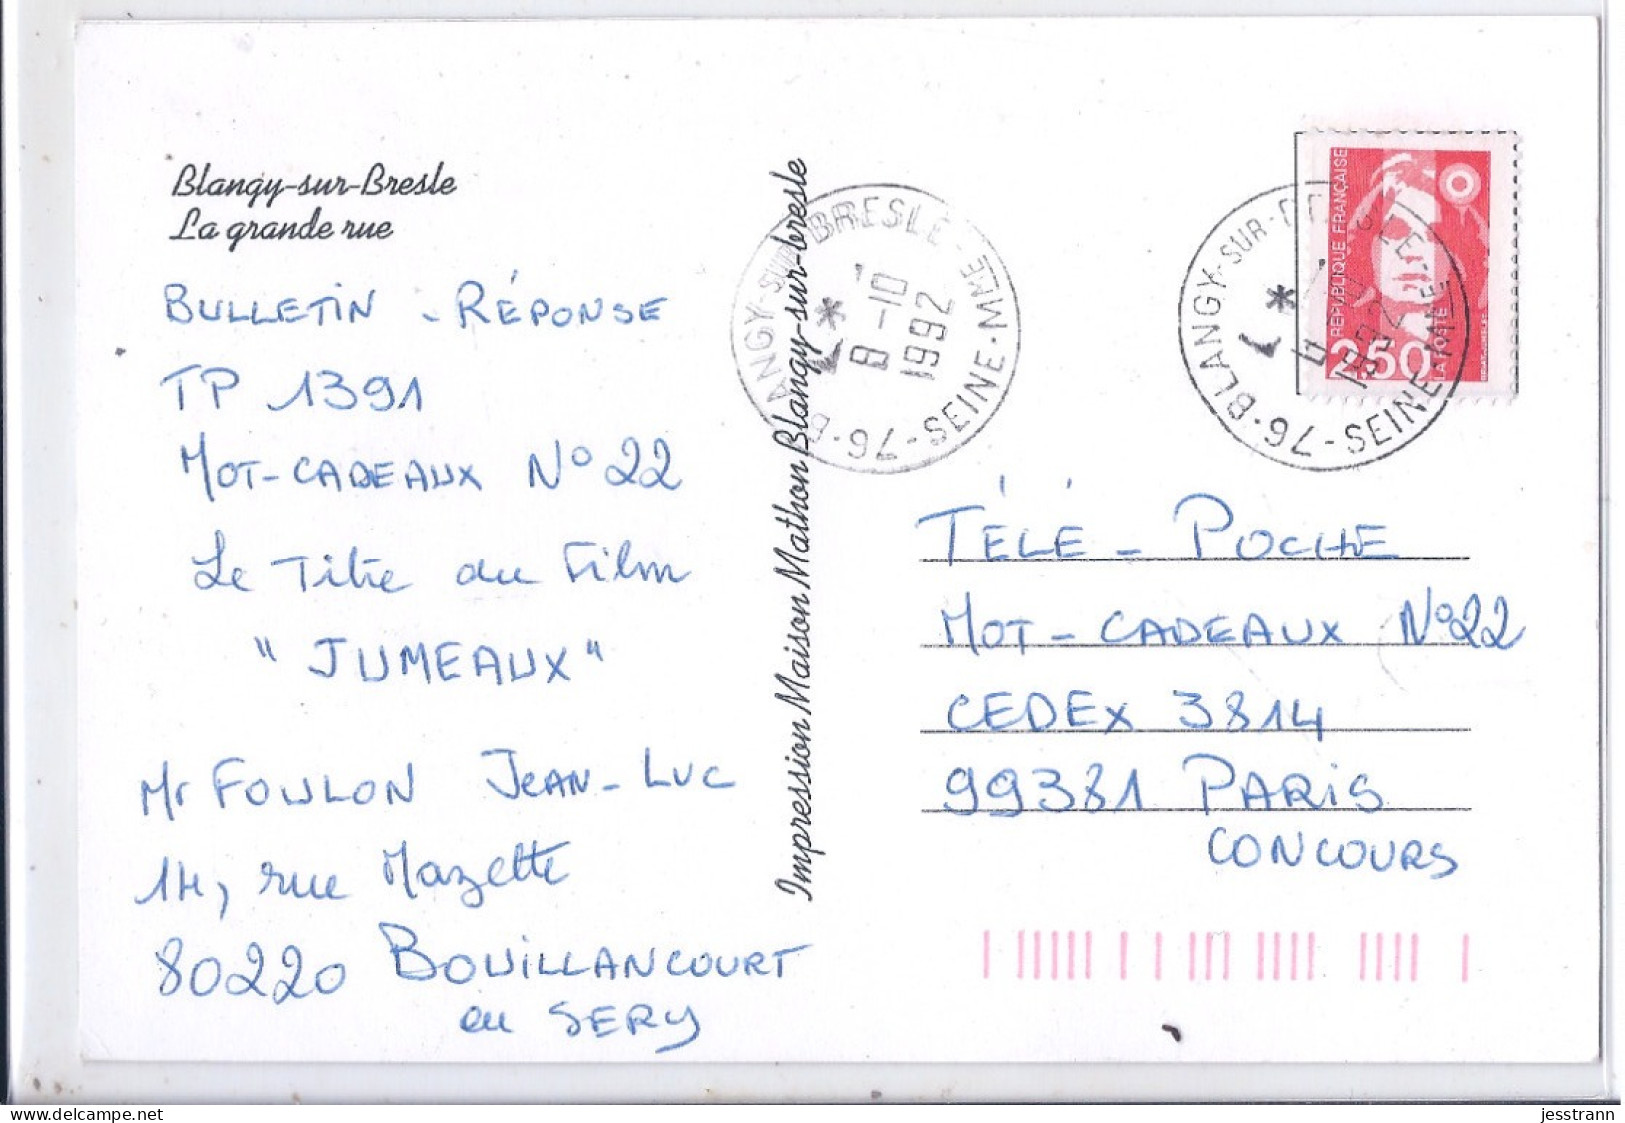 Blangy-sur-Bresle
La grande rue
BULLETIN - RÉPONSE
TP 1391
MOT-CADEAUX N° 22
Le Titre du Film
"JUMEAUX"
Mr FOULON JEAN-LUC
14, rue Mazette
80220 BOUILLANCOURT
en SERY
Impression Maison Mathon Blangy-sur-bresle
BLANGY-SUR-BRESLE
8-10
1992
76-SEINE-MME
REPUBLIQUE FRANÇAISE
2,50
LA POSTE
BLANGY-SUR-BRESLE
1992
76-SEINE-MME
TÉLÉ - POCHE
MOT-CADEAUX N°22
CEDEX 3814
99381 PARIS
CONCOURS
delcampe.net
jesstrann